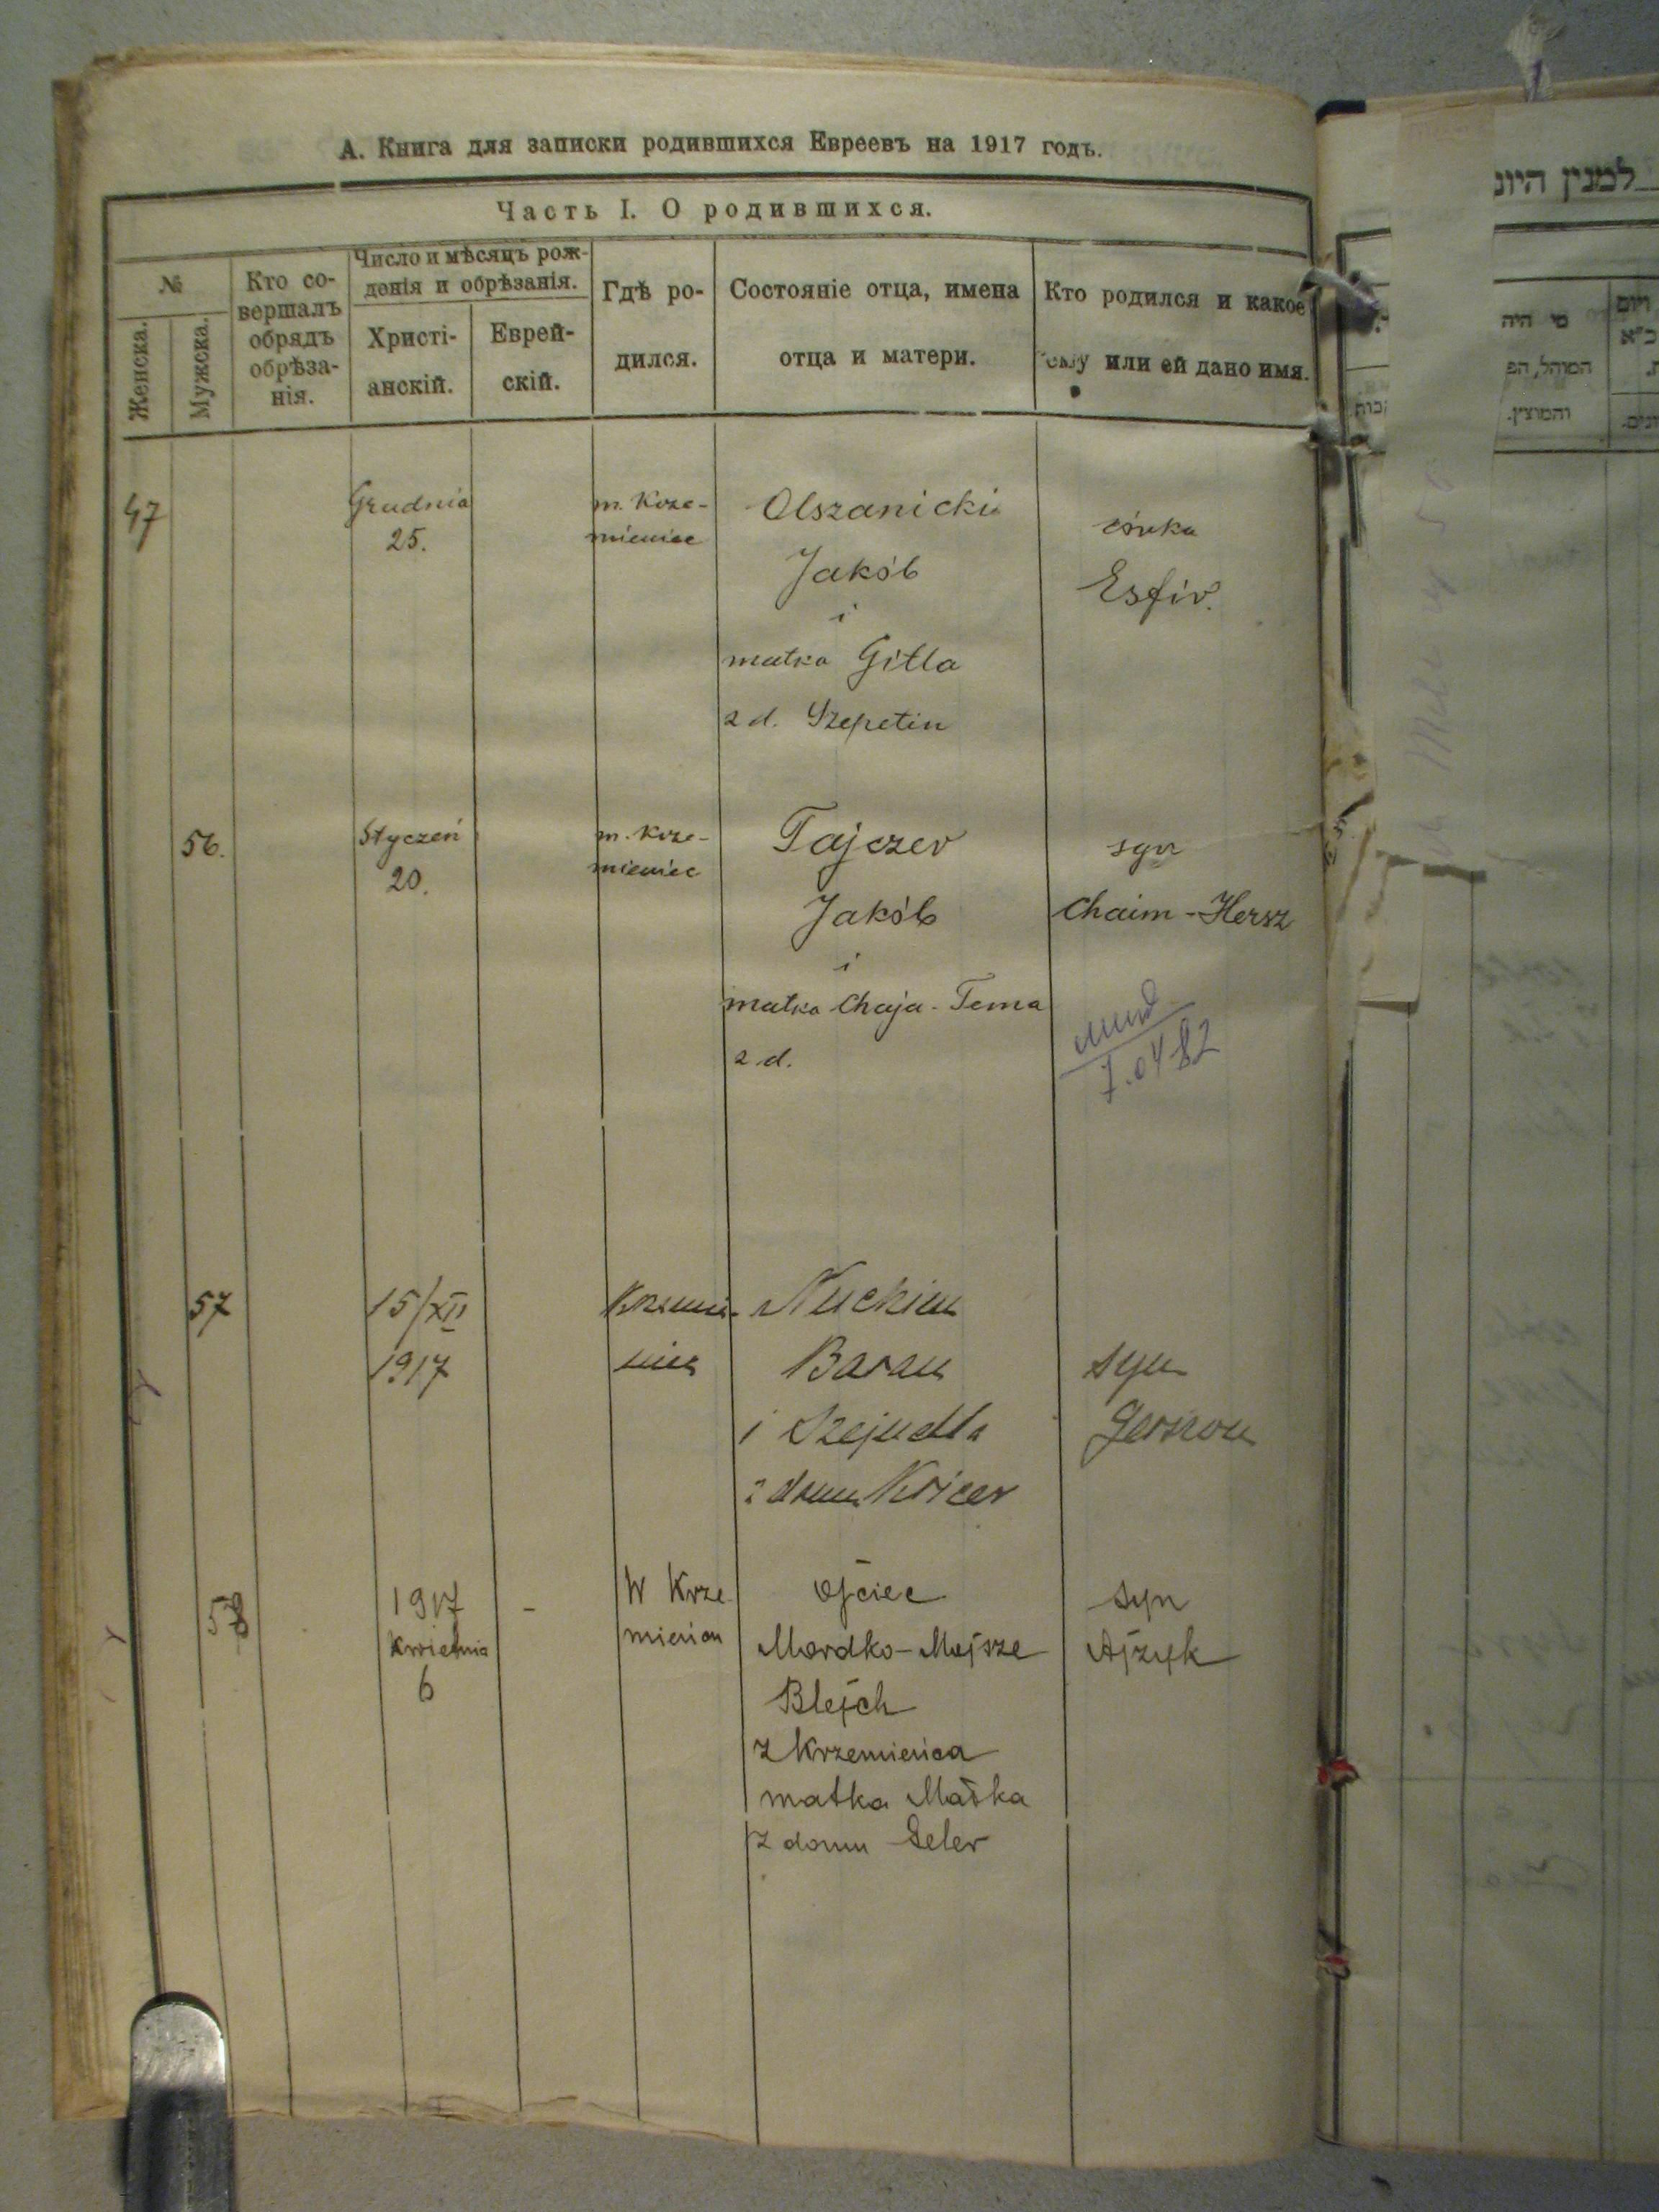 А. Книга для записки родившихся Евреевъ на 1917 годъ.
Часть I. О родившихся.
№
Женска.
Мужска.
Кто со-
вершалъ
обрядъ
обрѣза-
нія.
Число и мѣсяцъ рож-
денія и обрѣзанія.
Христі-
анскій.
Еврей-
скій.
Гдѣ ро-
дился.
Состояніе отца, имена
отца и матери.
Кто родился и какое
ему или ей дано имя.
47
Grudnia
25.
m. Krze-
mieniec
Olszanicki
Jakób
i
matka Gitla
z d. Szepetin
córka
Esfir.
56.
Styczeń
20.
m. Krze-
mieniec
Tajczer
Jakób
i
matka Chaja-Tema
z d.
syn
Chaim-Hersz
7.04 82
57
15/XII
1917
Krzemie-
niec
Nuchim
Baran
i Szejndla
z domu Kricer
syn
Gerszon
58
1917
Kwietnia
6
-
W Krze
mieńcu
ojciec
Mordko-Mojsze
Blejch
z Krzemieńca
matka Małka
z domu Seler
syn
Ajzyk
למנין היונ
מי היה
המוהל, הפ
והמוצץ.